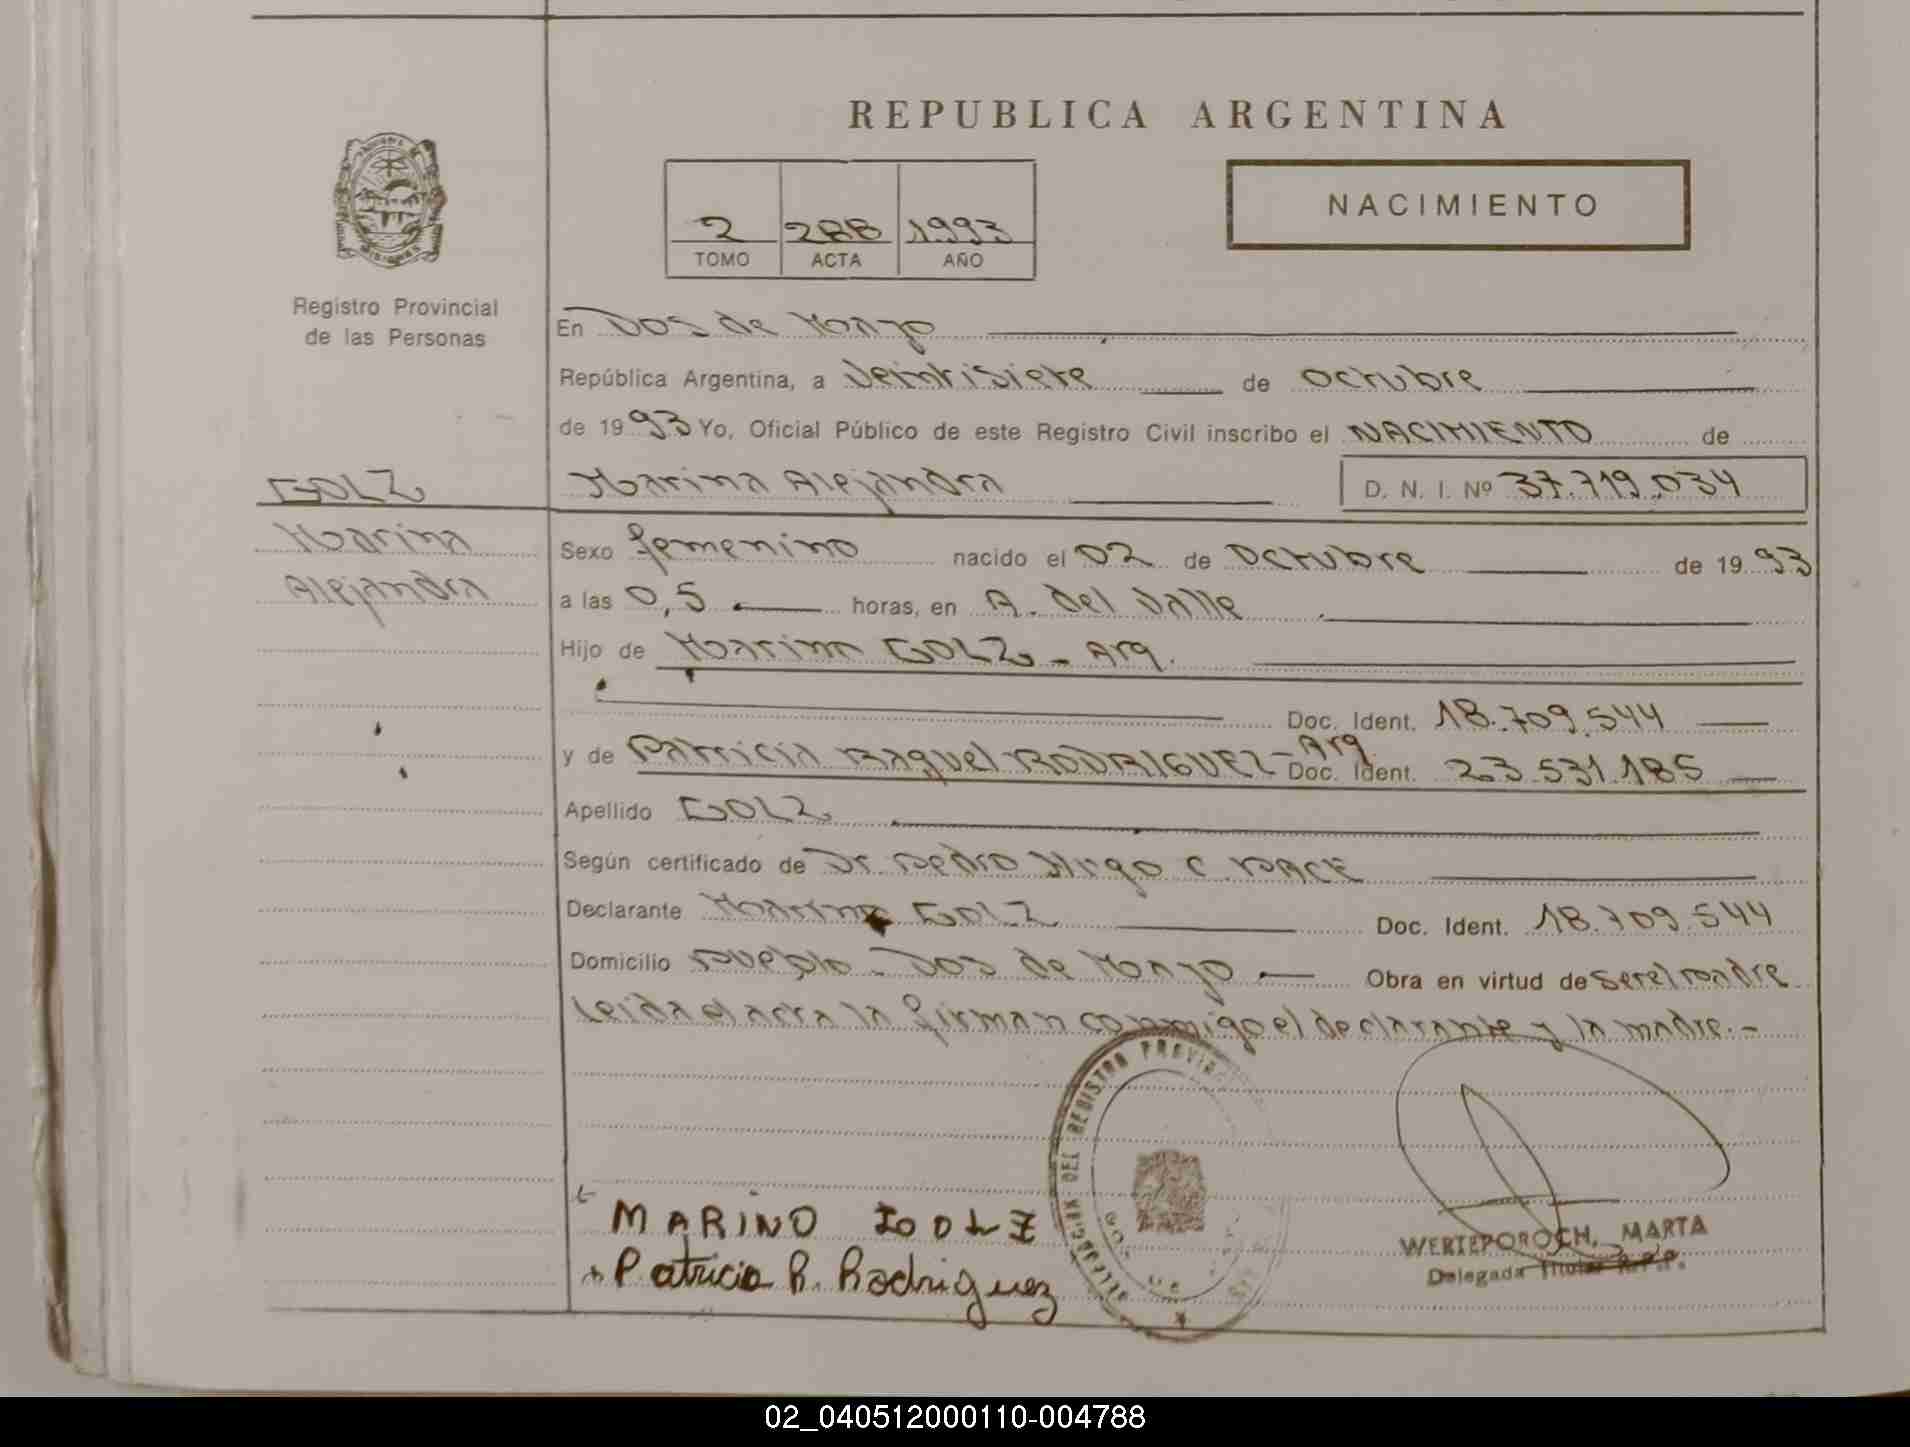 REPUBLICA ARGENTINA
NACIMIENTO
2 288 1993
TOMO ACTA AÑO
Registro Provincial
de las Personas
En Dos de Mayo
República Argentina, a veintisiete de octubre
de 1993 Yo, Oficial Público de este Registro Civil inscribo el NACIMIENTO de
GOLZ
Marina Alejandra D. N. I. Nº 37.719.034
Marina
Alejandra
Sexo femenino nacido el 02 de Octubre de 1993
a las 0,5 horas, en A. del Valle
Hijo de Marino GOLZ - Arg.
Doc. Ident. 18.709.544
y de Patricia Raquel RODRIGUEZ - Arg. Doc. Ident. 23.531.185
Apellido GOLZ
Según certificado de Dr. Pedro Hugo C. PACE
Declarante Marino GOLZ Doc. Ident. 18.709.544
Domicilio Pueblo - Dos de Mayo Obra en virtud de ser el padre
Leida el acta la firman conmigo el declarante y la madre.-
DELEGACION DEL REGISTRO PROVIN
DOS DE
MARINO GOLZ
Patricia R. Rodriguez
WERTEPOROCH, MARTA
Delegada Titular R.P.P.
02_040512000110-004788